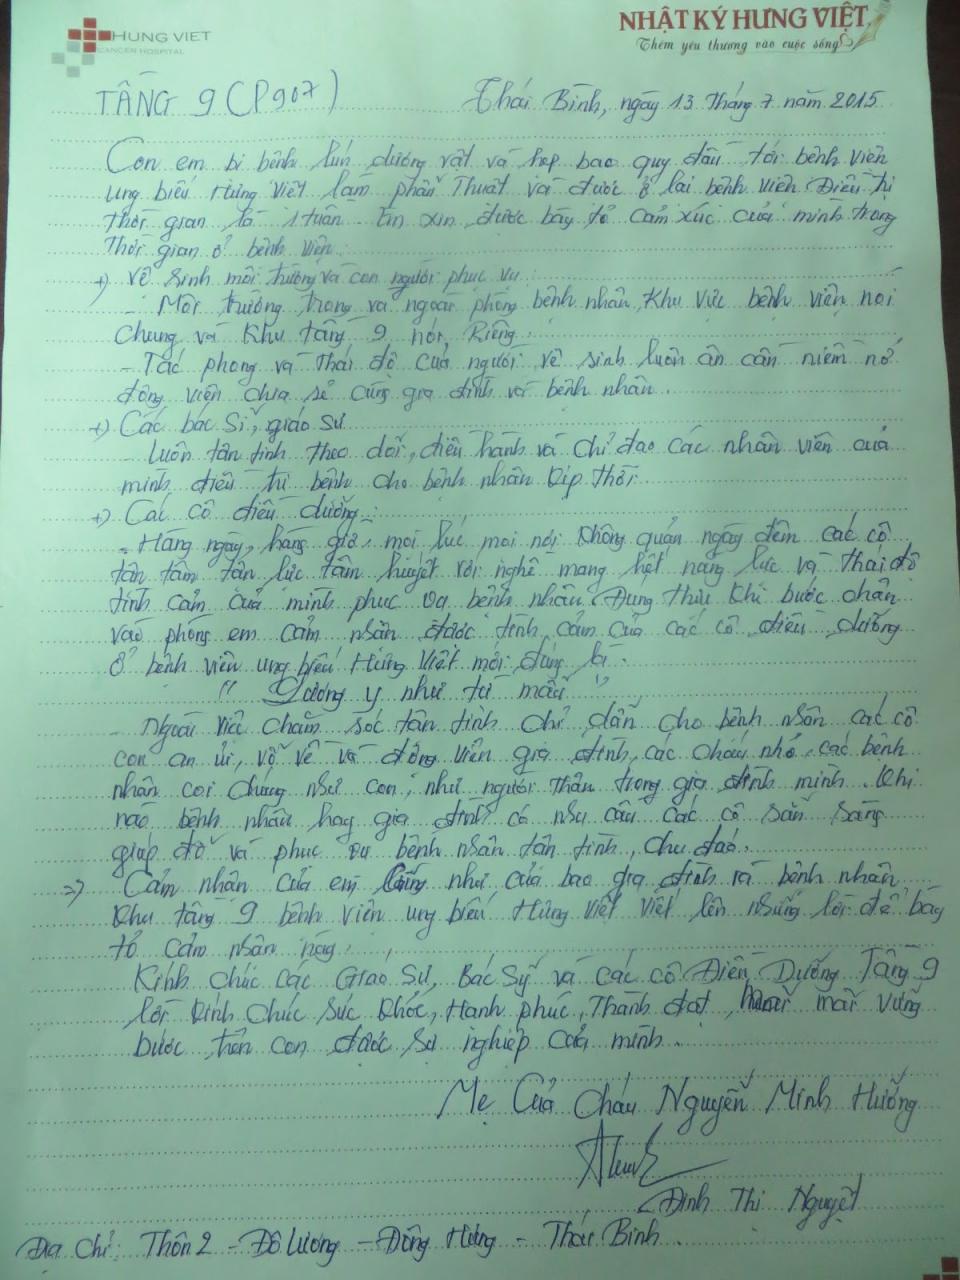 HUNG VIET
CANCER HOSPITAL
NHẬT KÝ HƯNG VIỆT
Thêm yêu thương vào cuộc sống
TẦNG 9 (P907)
Thái Bình, ngày 13 tháng 7 năm 2015
Con em bị bệnh lún dương vật và hẹp bao quy đầu tới bệnh viện
ung biếu Hưng Việt làm phẫu thuật và được ở lại bệnh viện Điều trị
thời gian là 1 tuần. Em xin được bày tỏ cảm xúc của mình trong
thời gian ở bệnh viện.
+) Vệ sinh môi trường và con người phục vụ:
- Môi trường trong và ngoài phòng bệnh nhân, khu vực bệnh viện nói
chung và khu tầng 9 nói Riêng.
- Tác phong và thái độ của người vệ sinh luôn ân cần niềm nở
động viên chia sẻ cùng gia đình và bệnh nhân.
+) Các bác sĩ, giáo sư
- Luôn tận tình theo dõi, điều hành và chỉ đạo các nhân viên của
mình điều trị bệnh cho bệnh nhân kịp thời.
+) Các cô điều dưỡng:
- Hàng ngày, hàng giờ, mọi lúc mọi nơi không quản ngày đêm các cô
tận tâm tận lực tâm huyết với nghề mang hết năng lực và thái độ
tình cảm của mình phục vụ bệnh nhân. Đúng thiu khi bước chân
vào phòng em cảm nhận được tình cảm của các cô điều dưỡng
ở bệnh viện ung biếu Hưng Việt mới đúng là.
" Lương y như từ mẫu "
- Ngoài việc chăm sóc tận tình chỉ dẫn cho bệnh nhân các cô
còn an ủi, vỗ về và động viên gia đình, các cháu nhỏ, các bệnh
nhân coi chúng như con, như người thân trong gia đình mình. Khi
nào bệnh nhân hay gia đình có nhu cầu các cô sẵn sàng
giúp đỡ và phục vụ bệnh nhân tận tình, chu đáo.
=> Cảm nhận của em cũng như của bao gia đình và bệnh nhân
khu tầng 9 bệnh viện ung biếu Hưng Việt viết lên những lời để bày
tỏ cảm nhận này.
Kính chúc các Giáo Sư, Bác Sỹ và các cô Điều Dưỡng Tầng 9
lời kính chúc sức khỏe, Hạnh phúc, Thành đạt, mãi vững
bước trên con được sự nghiệp của mình.
Mẹ Của Cháu Nguyễn Minh Hưởng
Đinh Thị Nguyệt
Địa chỉ: Thôn 2 - Đô Lương - Đông Hưng - Thái Bình.